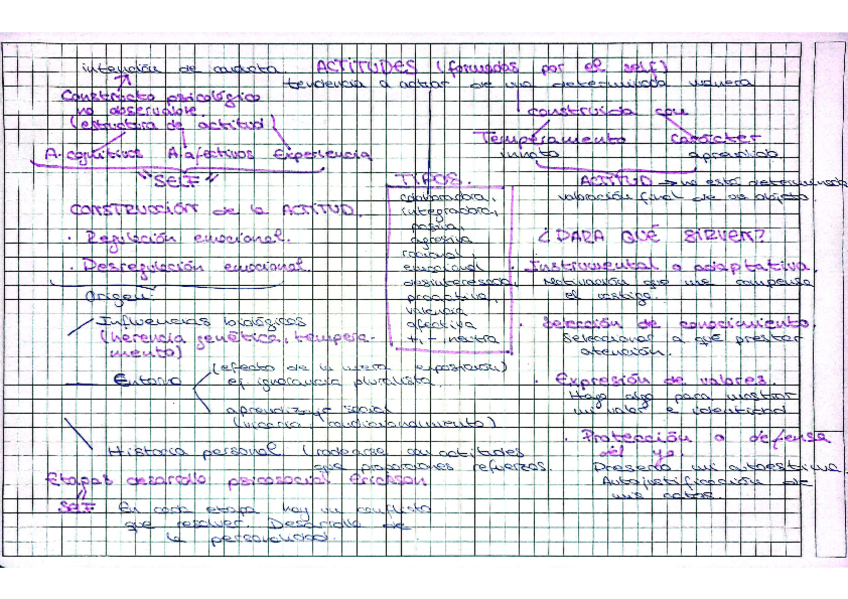 intención de conducta    ACTITUDES (formadas por el self)
tendencia a actuar de una determinada manera
Constructo psicológico
no observable.
(estructura de actitud)
construida con
Temperamento    Carácter
innato    aprendido
A. cognitivos    A. afectivos    Experiencia
"SELF"
ACTITUD → no está determinada
valoración final de un objeto.
CONSTRUCCIÓN de la ACTITUD.
· Regulación emocional.
· Desregulación emocional.
TIPOS.
colaboradora,
integradora,
pasiva,
agresiva
racional,
emocional
desinteresada,
proactiva,
valencia
afectiva
+, -, neutra
¿PARA QUÉ SIRVEN?
· Instrumental o adaptativa.
Motivación que me compensa
el castigo.
· Selección de conocimiento.
Seleccionar a qué prestar
atención.
· Expresión de valores.
Hago algo para mostrar
mi valor e identidad
· Protección o defensa
del yo.
Preservo mi autoestima
Autojustificación de
mis actos.
Origen:
Influencias biológicas
(herencia genética, tempera-
mento)
Entorno
(efecto de la mera exposición)
ef ignorancia pluralista.
aprendizaje social
(vicario / condicionamiento)
Historia personal (rodearse con actitudes
que proporciones refuerzos.
Etapas desarrollo psicosocial Erickson
SELF    En cada etapa hay un conflicto
que resolver. Desarrollo de
la personalidad.